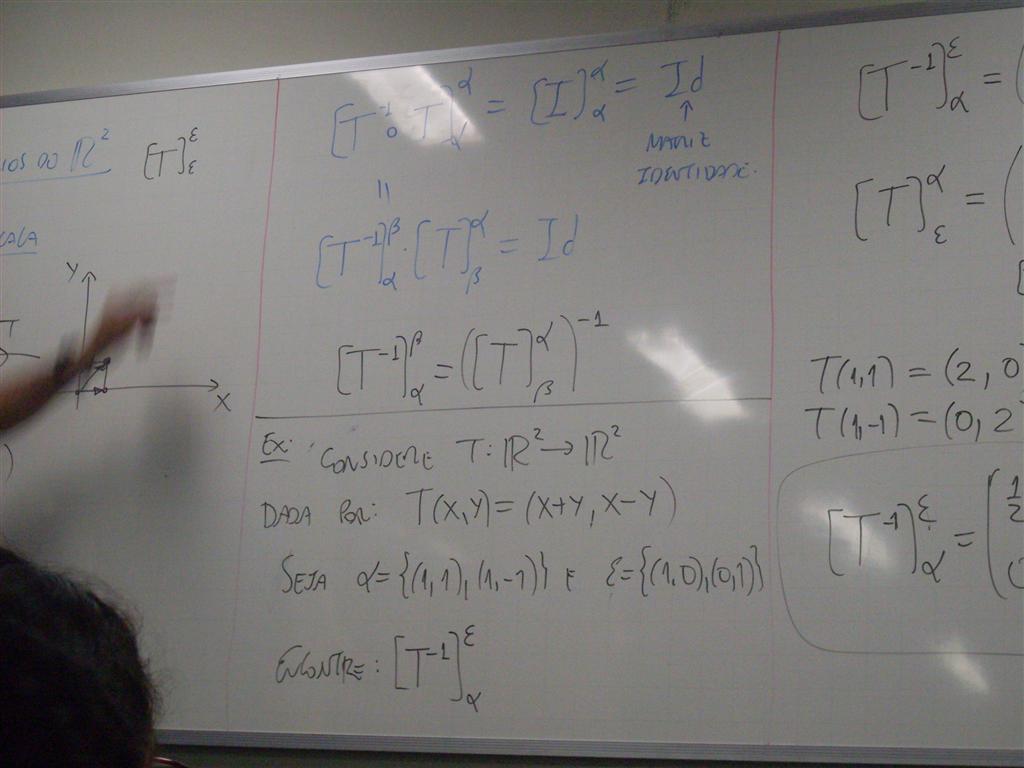 IOS DO ℝ² [T]^ε_ε
Y
T
X
[T⁻¹ ∘ T]^α_α = [I]^α_α = Id
↑
MATRIZ
IDENTIDADE.
=
[T⁻¹]^β_α · [T]^α_β = Id
[T⁻¹]^β_α = ([T]^α_β)⁻¹
Ex: CONSIDERE T: ℝ² → ℝ²
DADA POR: T(X,Y) = (X+Y, X-Y)
SEJA α = {(1,1), (1,-1)} E ε = {(1,0), (0,1)}
ENCONTRE: [T⁻¹]^ε_α
[T⁻¹]^ε_α = (
[T]^α_ε = (
[
T(1,1) = (2, 0
T(1,-1) = (0, 2
[T⁻¹]^ε_α = ( 1/2